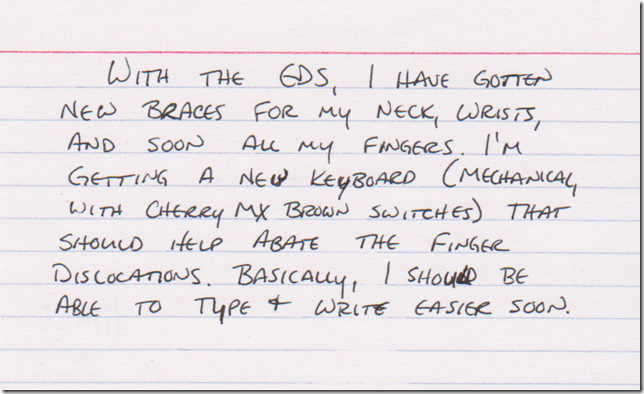 WITH THE EDS, I HAVE GOTTEN
NEW BRACES FOR MY NECK, WRISTS,
AND SOON ALL MY FINGERS. I'M
GETTING A NEW KEYBOARD (MECHANICAL,
WITH CHERRY MX BROWN SWITCHES) THAT
SHOULD HELP ABATE THE FINGER
DISLOCATIONS. BASICALLY, I SHOULD BE
ABLE TO TYPE & WRITE EASIER SOON.